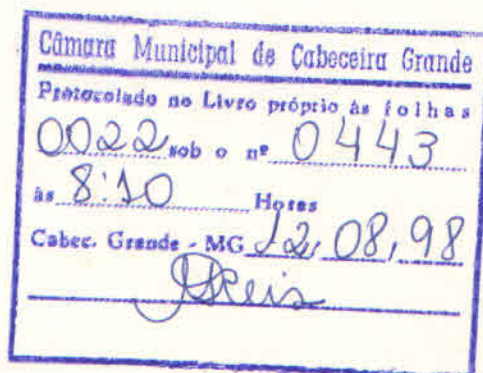 Câmara Municipal de Cabeceira Grande
Protocolado no Livro próprio às folhas
0022 sob o nº 0443
às 8:10 Horas
Cabec. Grande - MG 12, 08, 98
Reis